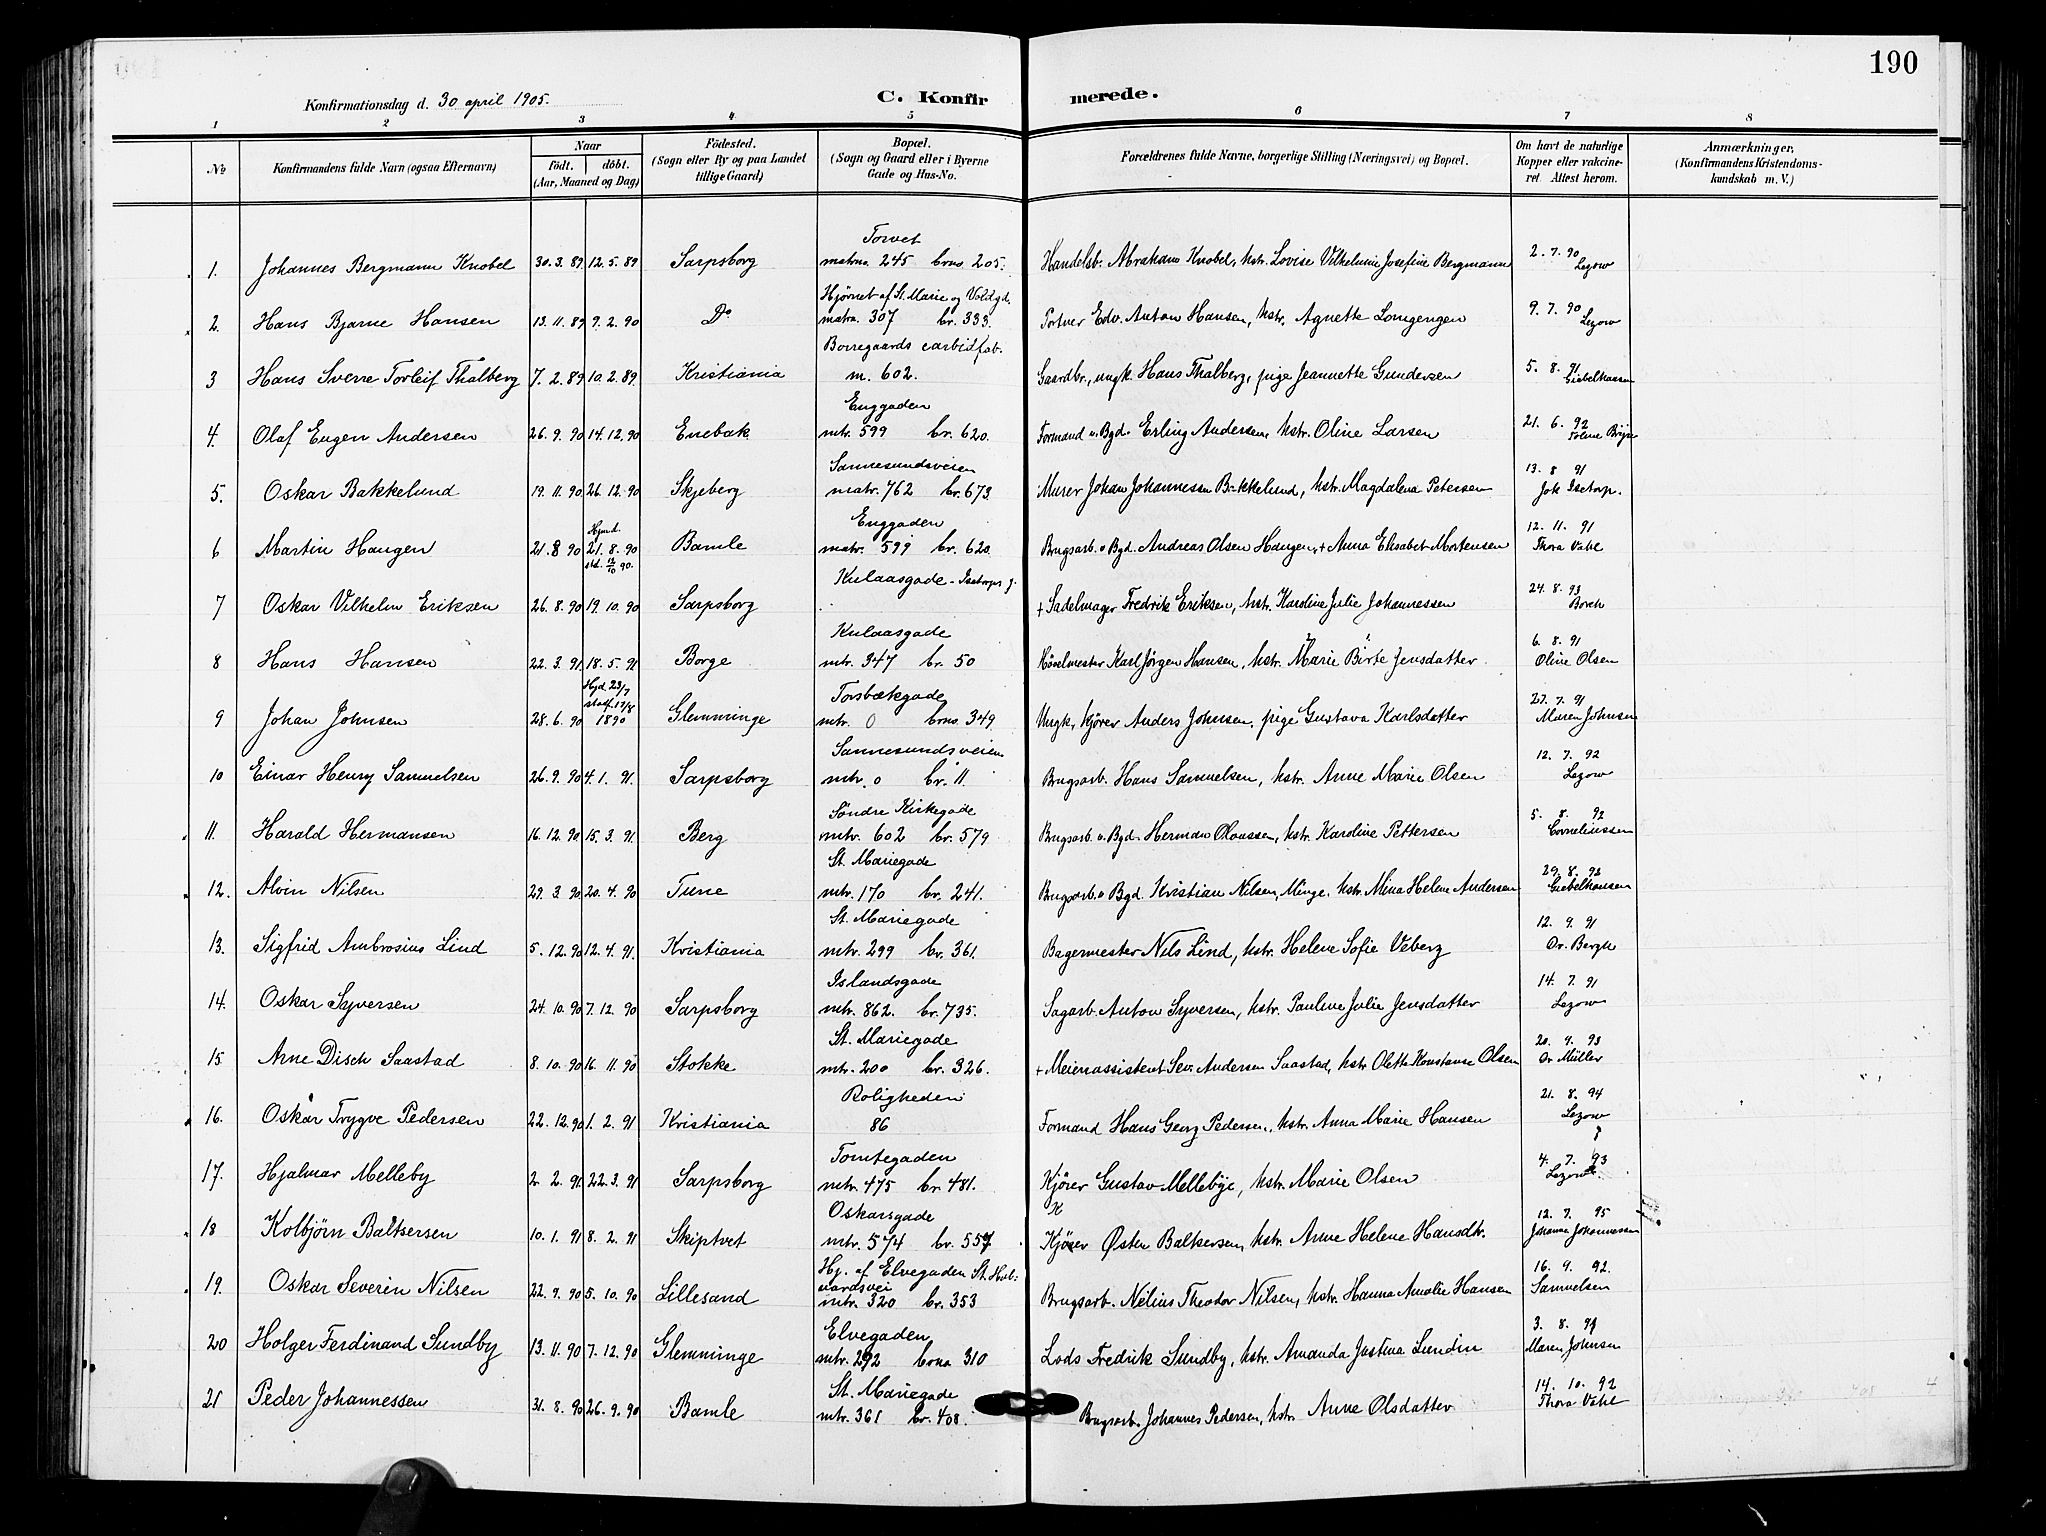 190
Konfirmationsdag d. 30 april 1905.
C. Konfirmerede.
1 2 3 4 5 6 7 8
No
Konfirmandens fulde Navn (ogsaa Efternavn)
Naar
födt. döbt.
(Aar, Maaned og Dag)
Födested.
(Sogn eller By og paa Landet
tillige Gaard)
Bopæl.
(Sogn og Gaard eller i Byerne
Gade og Hus-No.
Forældrenes fulde Navne, borgerlige Stilling (Næringsvei) og Bopæl.
Om havt de naturlige
Kopper eller vakcine-
ret. Attest herom.
Anmærkninger,
(Konfirmandens Kristendoms-
kundskab m. V.)
Torvet 2. 7. 90
1. Johannes Bergmann Knobel 30. 3. 89 12. 5. 89 Sarpsborg matrno. 245 brno. 205. Handelsb. Abraham Knobel, hstr. Lovise Vilhelmine Josefine Bergmann Lezow
Hjørnet af St. Marie og Voldgd. 9. 7. 90
2. Hans Bjarne Hansen 13. 11. 89 9. 2. 90 Do matrn. 307 br. 333. Portner Edv. Anton Hansen, hstr. Agnette Longengen Lezow
Borregaards carbidfab. 5. 8. 91
3 Hans Sverre Torleif Thalberg 7. 2. 89 10. 2. 89. Kristiania m. 602. Gaardbr., ungk. Hans Thalberg, pige Jeannette Gundersen Giebelhausen
Enggaden 21. 6. 92
4. Olaf Eugen Andersen 26. 9. 90 14. 12. 90 Enebak mtr. 599 br. 620. Formand v. Bgd. Erling Andersen, hstr. Oline Larsen
Sannesundsveien 13. 8 91
5. Oskar Bakkelund 19. 11. 90 26. 12. 90 Skjeberg matr. 762 br. 673. Murer Johan Johannessen Bakkelund, hstr. Magdalena Petersen Joh Isetorp.
Hjemd. Enggaden 12. 11. 91
6 Martin Haugen 21. 8 90 21. 8. 90 Bamle matr. 599 br. 620. Brugsarb. v Bgd. Andreas Olsen Haugen, + Anna Elisabet Mortensen Thora Vahl
std. 12/10 90. Kulaasgade - Isetorps g. 24. 8. 93
7 Oskar Vilhelm Eriksen 26. 8. 90 19. 10. 90 Sarpsborg + Sadelmager Fredrik Eriksen, hstr. Karoline Julie Johannessen Borch
Kulaasgade 6. 8. 91
8 Hans Hansen 22. 3. 91 18. 5. 91 Borge mtr. 347 br. 50 Hövelmester Karl Jörgen Hansen, hstr. Marie Birte Jensdatter Oline Olsen
Hjd 23/7 stadf. 17/8 Torsbækgade 27. 7. 91
9 Johan Johnsen 28. 6. 90 1890 Glemminge mtr. 0 brno. 349 Ungk., kjörer Anders Johnsen, pige Gustava Karlsdatter Maren Johnsen
Sannesundsveien 12. 7. 92
10 Einar Henry Samuelsen 26. 9. 90 4. 1. 91. Sarpsborg mtr. 0 br. 11. Brugsarb. Hans Samuelsen, hstr. Anne Marie Olsen Lezow
Söndre Kirkegade 5. 8. 92
11. Harald Hermansen 16. 12. 90 15. 3. 91. Berg mtr. 602 br. 579 Brugsarb v. Bgd. Herman Olaussen, hstr. Karoline Pettersen Corneliussen
St. Mariegade 29. 8. 92
12. Alvin Nilsen 29. 3. 90 20. 4. 90 Tune mtr. 170 br. 241. Brugsarb. v Bgd. Kristian Nilsen, Minge, hstr. Mina Helene Andersen Giebelhausen
St. Mariegade 12. 9. 91
13. Sigfrid Ambrosius Lind 5. 12. 90 12. 4. 91. Kristiania mtr. 299 br. 361. Bagermester Nils Lind, hstr. Helene Sofie Veberg Dr. Bergh
Islandsgade 14. 7. 91
14. Oskar Syversen 24. 10. 90 7. 12. 90 Sarpsborg mtr. 862. br. 735. Sagarb. Anton Syversen, hstr. Pauline Julie Jensdatter Lezow
St. Mariegade 20. 9. 93
15 Arne Disch Saastad 8. 10. 90 16. 11. 90 Stokke mtr. 200 br. 326. + Meieriassistent Sev. Andersen Saastad, hstr. Oletta Konstanse Olsen Dr Müller
Roligheden 21. 8. 94
16. Oskar Trygve Pedersen 22. 12. 90 1. 2. 91 Kristiania 86 Formand Hans Georg Pedersen, hstr. Anna Marie Hansen Lezow
Tomtegaden 4. 7. 93
17. Hjalmar Melleby 2. 2. 91. 22. 3. 91 Sarpsborg mtr. 475 br. 481. Kjörer Gustav Mellebye, hstr. Marie Olsen Lezow
Oskarsgade K 12. 7. 95
18 Kolbjörn Baltsersen 10. 1. 91 8. 2. 91 Skiptvet mtr. 574 br. 557 Kjörer Østen Baltsersen, hstr. Anne Helene Hansdtr. Johanne Johannessen
Hj. af Elvegaden St. Hal-
vardsvei 16. 9. 92.
19. Oskar Severin Nilsen 22. 9. 90 5. 10. 90 Lillesand mtr. 320 br. 353 Brugsarb. Nelius Theodor Nilsen, hstr. Hanna Amalie Hansen Samuelsen
Elvegaden 3. 8. 91
20 Holger Ferdinand Sundby 13. 11. 90 7. 12. 90 Glemminge mtr. 292 brno 310 Lods Fredrik Sundby, hstr. Amanda Justina Lundin Maren Johnsen
St. Mariegade 14. 10. 92
21 Peder Johannessen 31. 8. 90 26. 9. 90 Bamle mtr. 361 br. 408. Brugsarb. Johannes Pedersen, hstr. Anne Olsdatter Thora Vahl